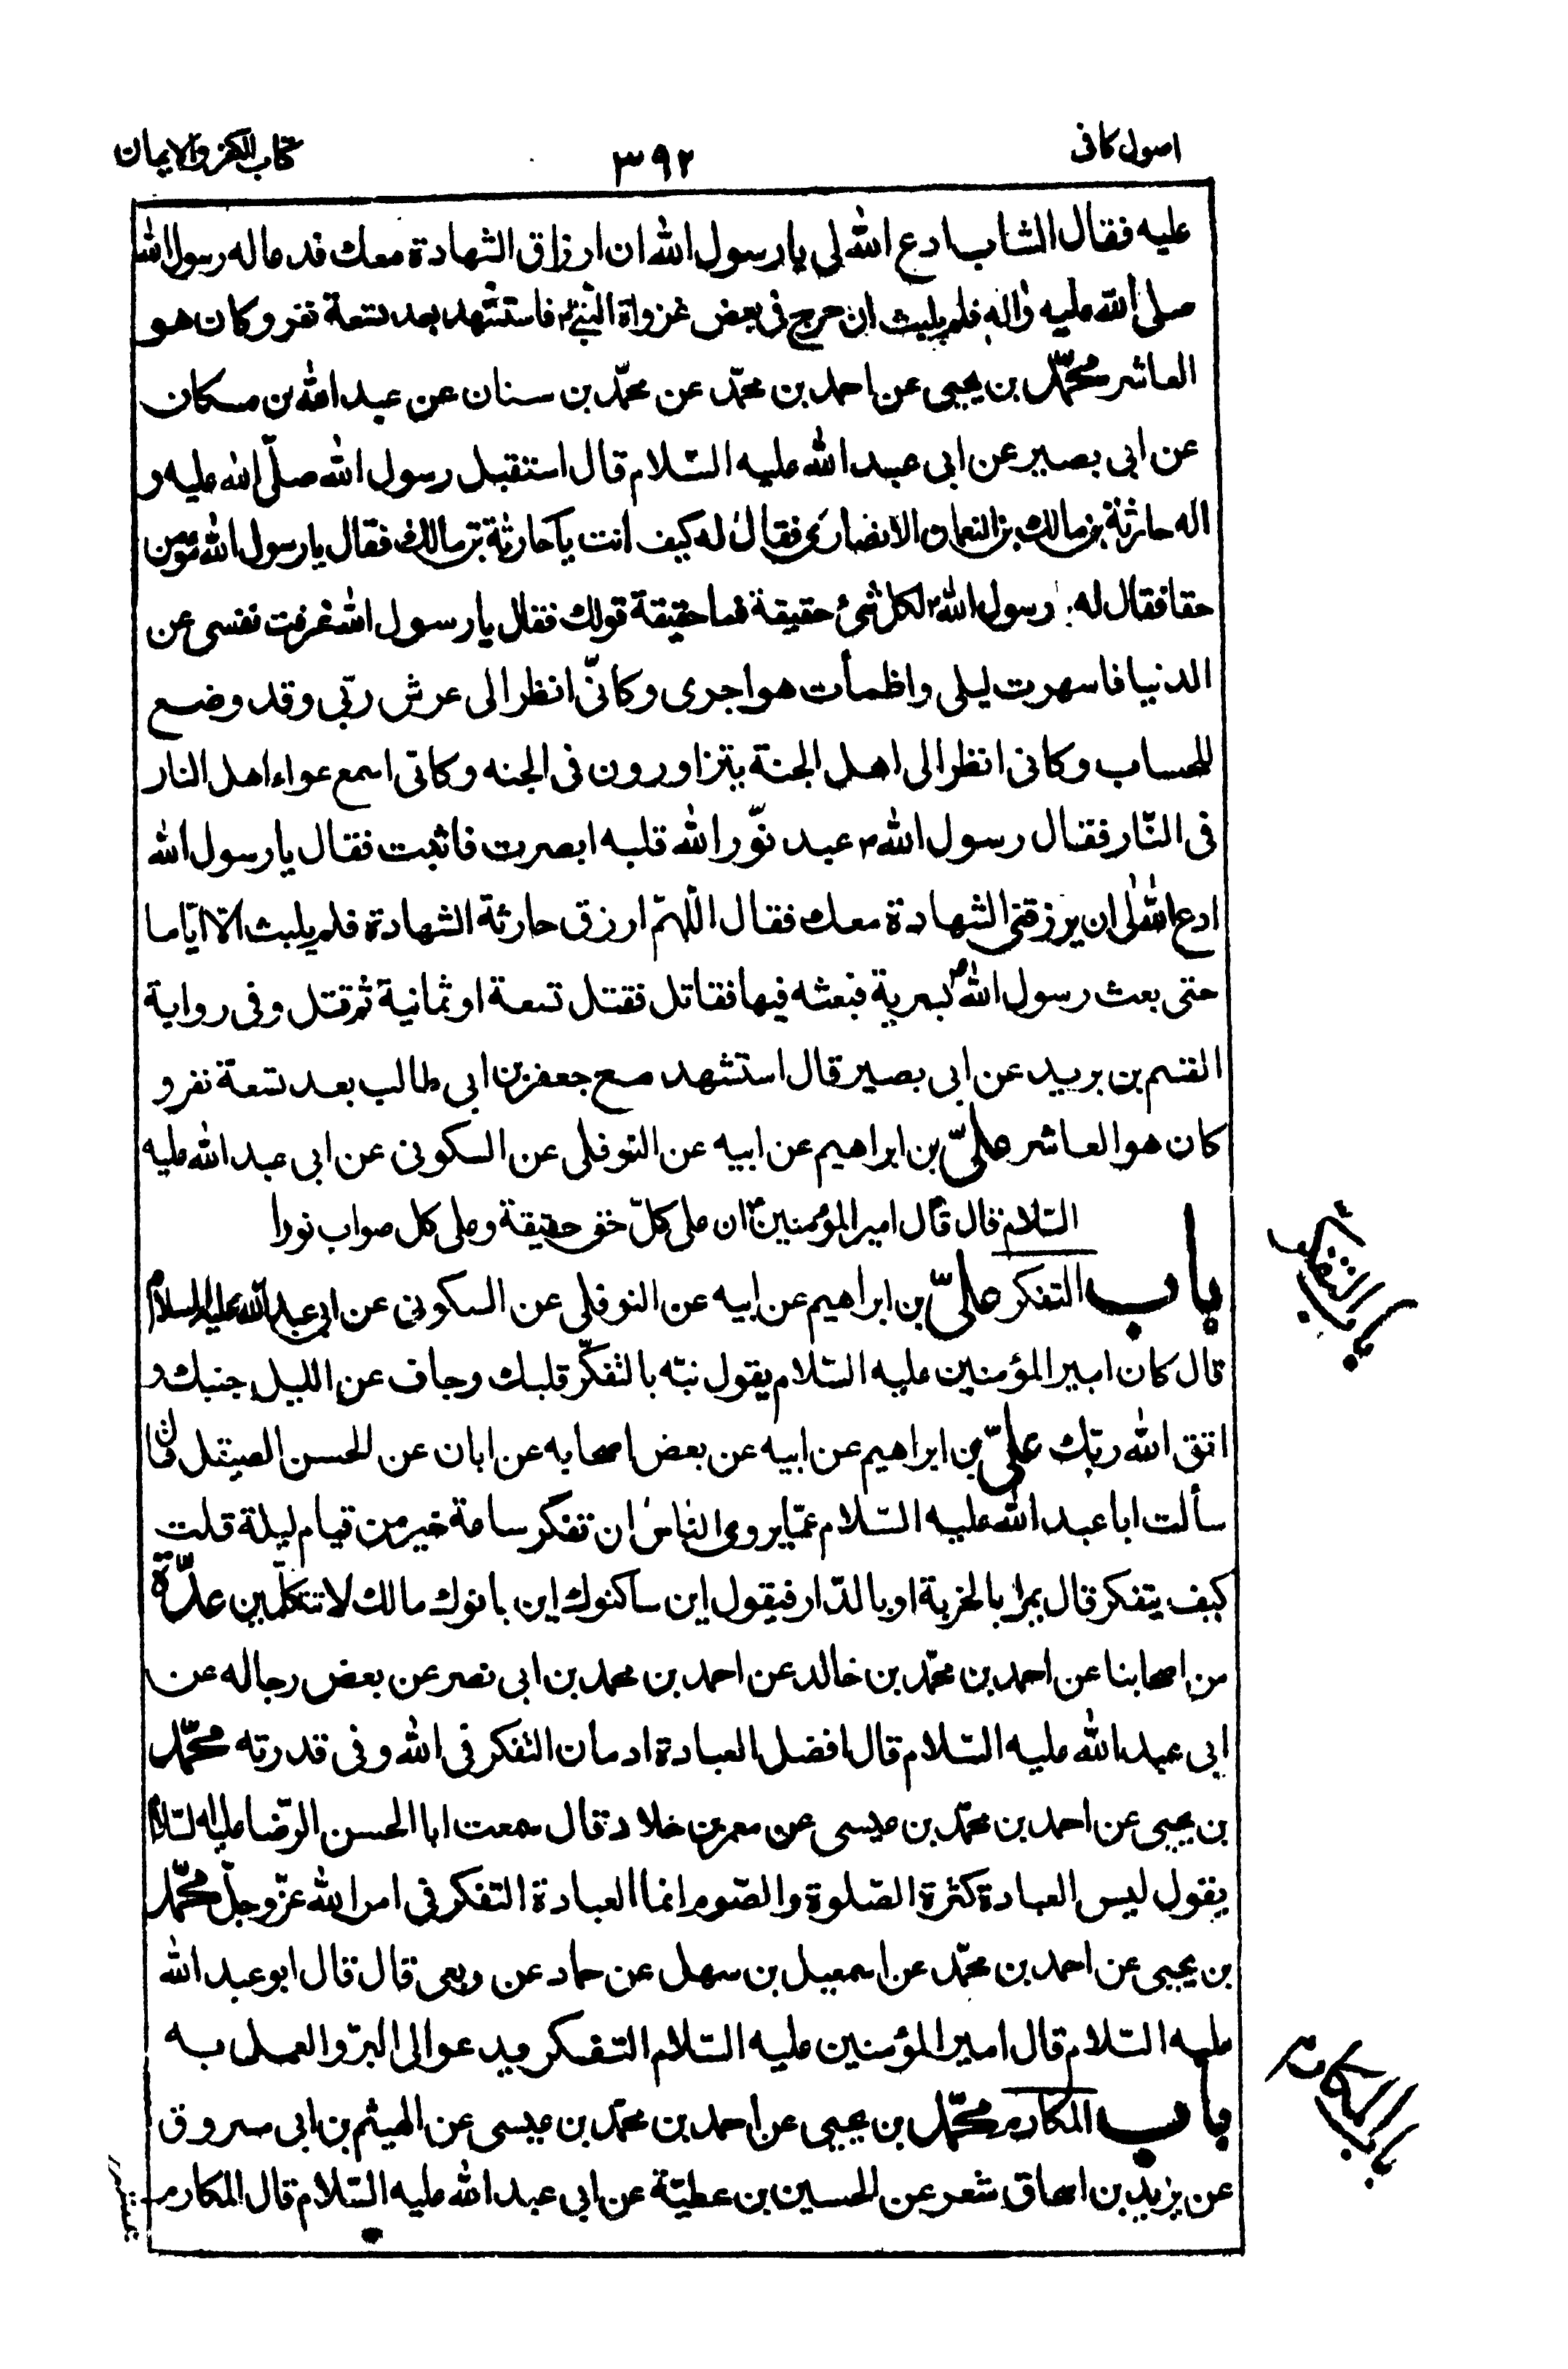 اصول كافى
٣٩٢
كتاب الكفر والايمان
عليه فقال الشاب ادع الله لى يا رسول الله ان ارزاق الشهادة معك فدعا له رسول الله
صلى الله عليه واله فلم يلبث ان خرج فى بعض غزواة النبىّ ص فاستشهد بعد تسعة نفر وكان هو
العاشر محمّد بن يحيى عن احمد بن محمّد عن محمّد بن سنان عن عبد الله بن مسكان
عن ابى بصير عن ابى عبد الله عليه السّلام قال استقبل رسول الله صلّى الله عليه و
اله حارثة بن مالك بن النعمان الانصارى فقال له كيف انت يا حارثة بن مالك فقال يا رسول الله مؤمن
حقا فقال له رسول الله ص لكل شىء حقيقة فما حقيقة قولك فقال يا رسول الله عرفت نفسى عن
الدنيا فاسهرت ليلى واظمأت هواجرى وكانّى انظر الى عرش ربّى وقد وضع
للحساب وكانى انظر الى اهل الجنة يتزاورون فى الجنه وكانى اسمع عواء اهل النار
فى النّار فقال رسول الله ص عبد نوّر الله قلبه ابصرت فاثبت فقال يا رسول الله
ادع الله لى ان يرزقنى الشهادة معك فقال اللّهمّ ارزق حارثة الشهادة فلم يلبث الّا ايّاما
حتى بعث رسول الله ص بسرية فبعثه فيها فقاتل فقتل تسعة او ثمانية ثم قتل وفى رواية
القسم بن بريد عن ابى بصير قال استشهد مع جعفر بن ابى طالب بعد تسعة نفر و
كان هو العاشر علىّ بن ابراهيم عن ابيه عن النوفلى عن السكونى عن ابى عبد الله عليه
السّلام قال قال امير المؤمنين ع ان على كلّ حق حقيقة وعلى كل صواب نورا
باب التفكر علىّ بن ابراهيم عن ابيه عن النوفلى عن السكونى عن ابى عبد الله عليه السلام
باب التفكر
قال كان امير المؤمنين عليه السّلام يقول نبّه بالتفكّر قلبك وجاف عن الليل جنبك و
اتق الله ربّك علىّ بن ابراهيم عن ابيه عن بعض اصحابه عن ابان عن الحسن الصيقل قال
سألت ابا عبد الله عليه السّلام عمّا يروى الناس ان تفكر ساعة خير من قيام ليلة قلت
كيف يتفكر قال يمرّ بالخربة او بالدّار فيقول اين ساكنوك اين بانوك مالك لا تتكلّمين عدّة
من اصحابنا عن احمد بن محمّد بن خالد عن احمد بن محمد بن ابى نصر عن بعض رجاله عن
ابى عبد الله عليه السّلام قال افضل العبادة ادمان التفكر فى الله وفى قدرته محمّد
بن يحيى عن احمد بن محمّد بن عيسى عن معمر بن خلاد قال سمعت ابا الحسن الرّضا عليه السّلام
يقول ليس العبادة كثرة الصّلوة والصّوم انما العبادة التفكر فى امر الله عزّ وجلّ محمّد
بن يحيى عن احمد بن محمّد عن اسمعيل بن سهل عن حماد عن ربعى قال قال ابو عبد الله
عليه السّلام قال امير المؤمنين عليه السّلام التفكر يدعو الى البرّ والعمل به
باب المكارم محمّد بن يحيى عن احمد بن محمّد بن عيسى عن الهيثم بن ابى مسروق
باب المكارم
عن يزيد بن اسحاق شعر عن الحسين بن عطيّة عن ابى عبد الله عليه السّلام قال المكارم